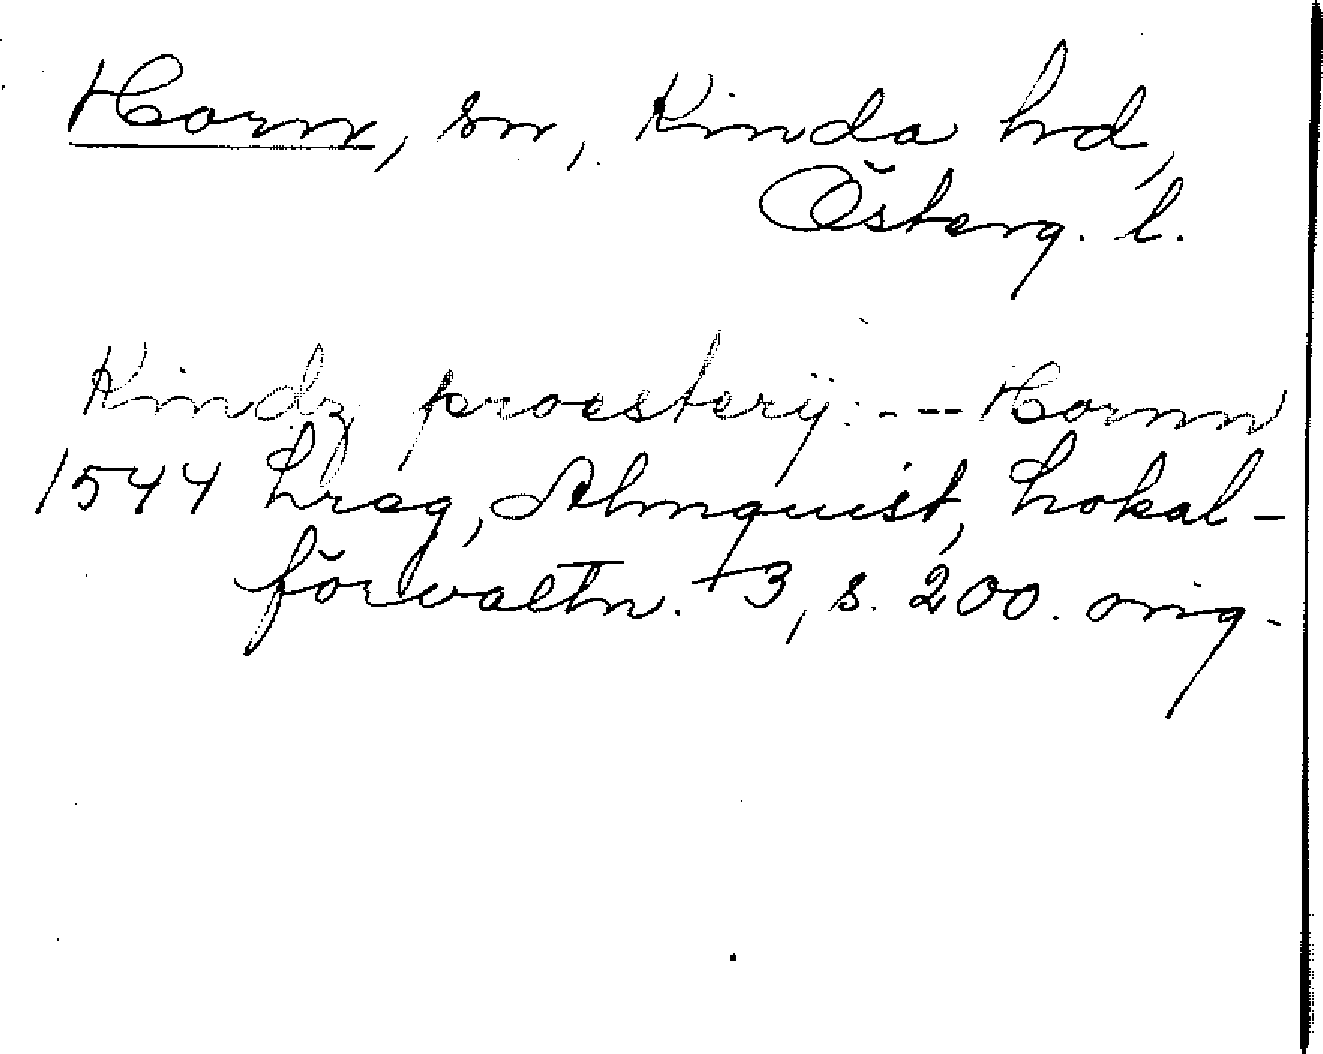 Horn, sn, Kinda hd,
Österg. l.
Kindz proesterij: --- Hornn
1544 Lreg, Almquist, Lokal-
förvaltn. +3, s. 200. orig.